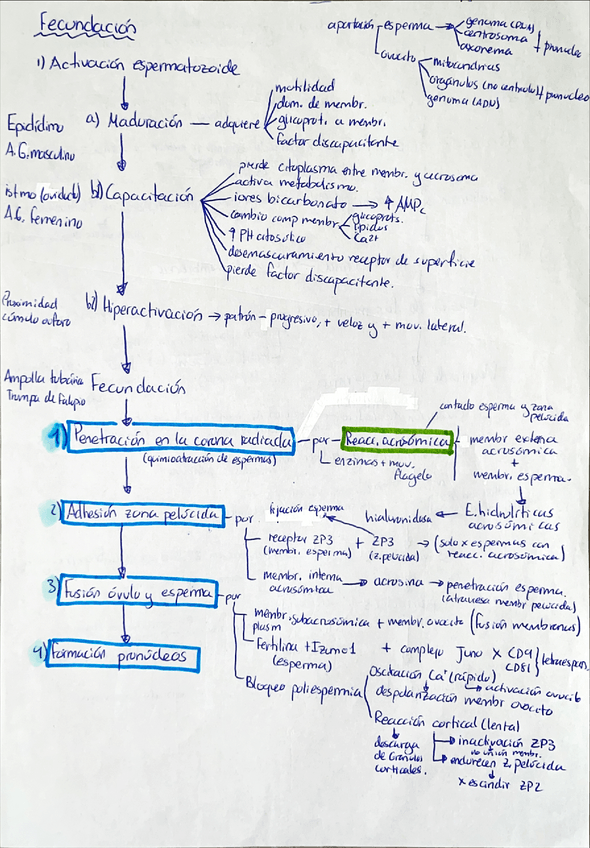 Fecundación
aportación esperma → genoma (ADN)
centrosoma
axonema
+ pronucleo
ovocito mitocondrias
orgánulos (no centriolo) + pronucleo
genoma (ADN)
1) Activación espermatozoide
Epidídimo
A.G. masculino
a) Maduración — adquiere
motilidad
dom. de membr.
glicoprot. a membr.
factor discapacitante
istmo (oviducto)
A.G. femenino
b) Capacitación
pierde citoplasma entre membr. y acrosoma
activa metabolismo.
iones bicarbonato → ↑ AMPc
cambio comp membr
glucoprots.
lípidos
Ca2+
↑ PH citosólico
desemascaramiento receptor de superficie
pierde factor discapacitante.
Proximidad
cúmulo ooforo
b2) Hiperactivación → patrón - progresivo, + veloz y + mov. lateral.
Ampolla tubárica
Trompa de Falopio
Fecundación
1) Penetración en la corona radiada
(quimioatracción de espermas)
por Reacc. acrosómica
enzimas + mov.
flagelo
contacto esperma y zona
pelúcida
membr externa
acrosómica
+
membr. esperma.
E. hidrolíticas
acrosómicas
hialuronidasa
2) Adhesión zona pelúcida - por
fijación esperma
receptor ZP3
(membr. esperma)
+ ZP3
(z. pelucida)
→ (solo x espermas con
reacc. acrosómica)
membr. interna
acrosómica
→ acrosina → penetración esperma.
(atraviesa membr pelucida)
3) Fusión óvulo y esperma - por
membr. subacrosómica + membr. ovocito (fusión membranas)
plasm
Fertilina + Izumo1
(esperma)
+ complejo Juno x CD9
CD81
tetraespan.
Bloqueo poliespermia
Oscilación Ca+ (rápido)
→ activación ovocito
despolarización membr ovocito
Reacción cortical (lenta)
descarga
de Gránulos
corticales.
inactivación ZP3
no unión membr.
endurecen z. pelúcida
x escindir ZP2
4) Formación pronúcleos